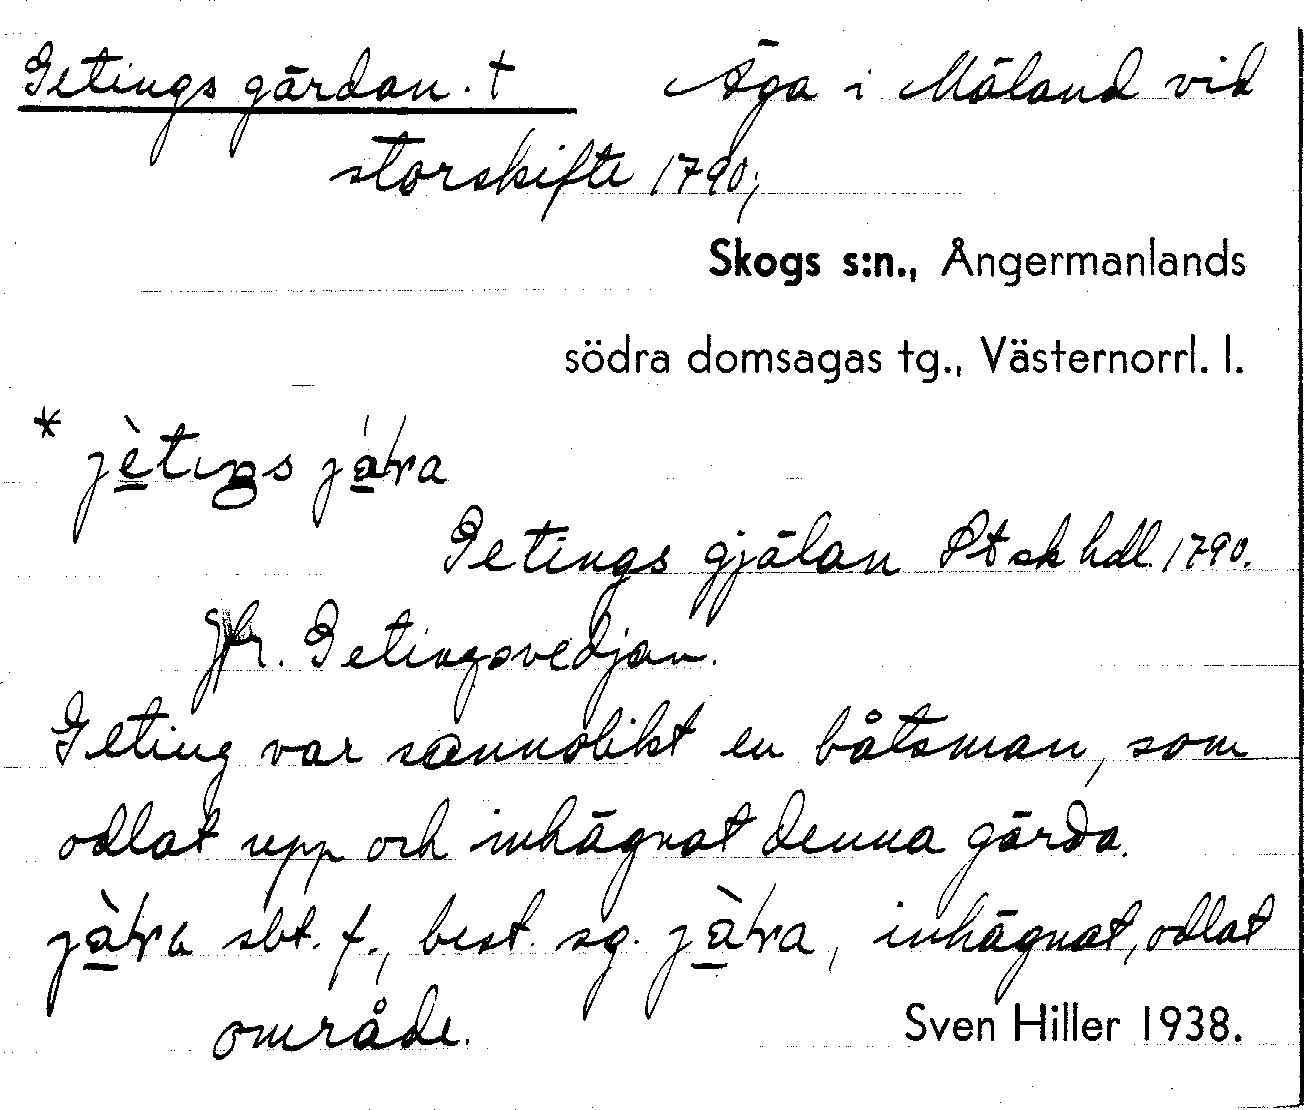 Getings gärdan. † Äga i Mäland vid
storskifte 1790;
Skogs s:n., Ångermanlands
södra domsagas tg., Västernorrl. l.
* jètiŋs
Getings gjälan Pt sk hdl. 1790.
Jfr. Getingsvedjan.
Geting var sannolikt en båtsman, som
odlat upp och inhägnat denna gärda.
sbt. f., best. sg. , inhägnat, odlat
område.
Sven Hiller 1938.